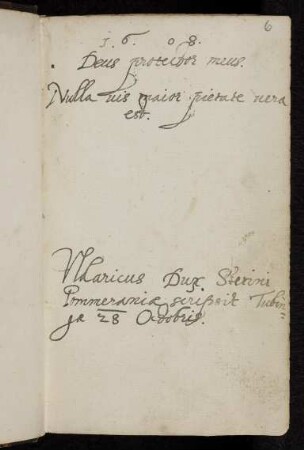 6
1. 6. 0 8.
Deus protector meus.
Nulla vis maior pietate vera
est.
Vldaricus Dux Stetini
Pommeraniæ scripsit Tubin=
gæ 28 Octobris.